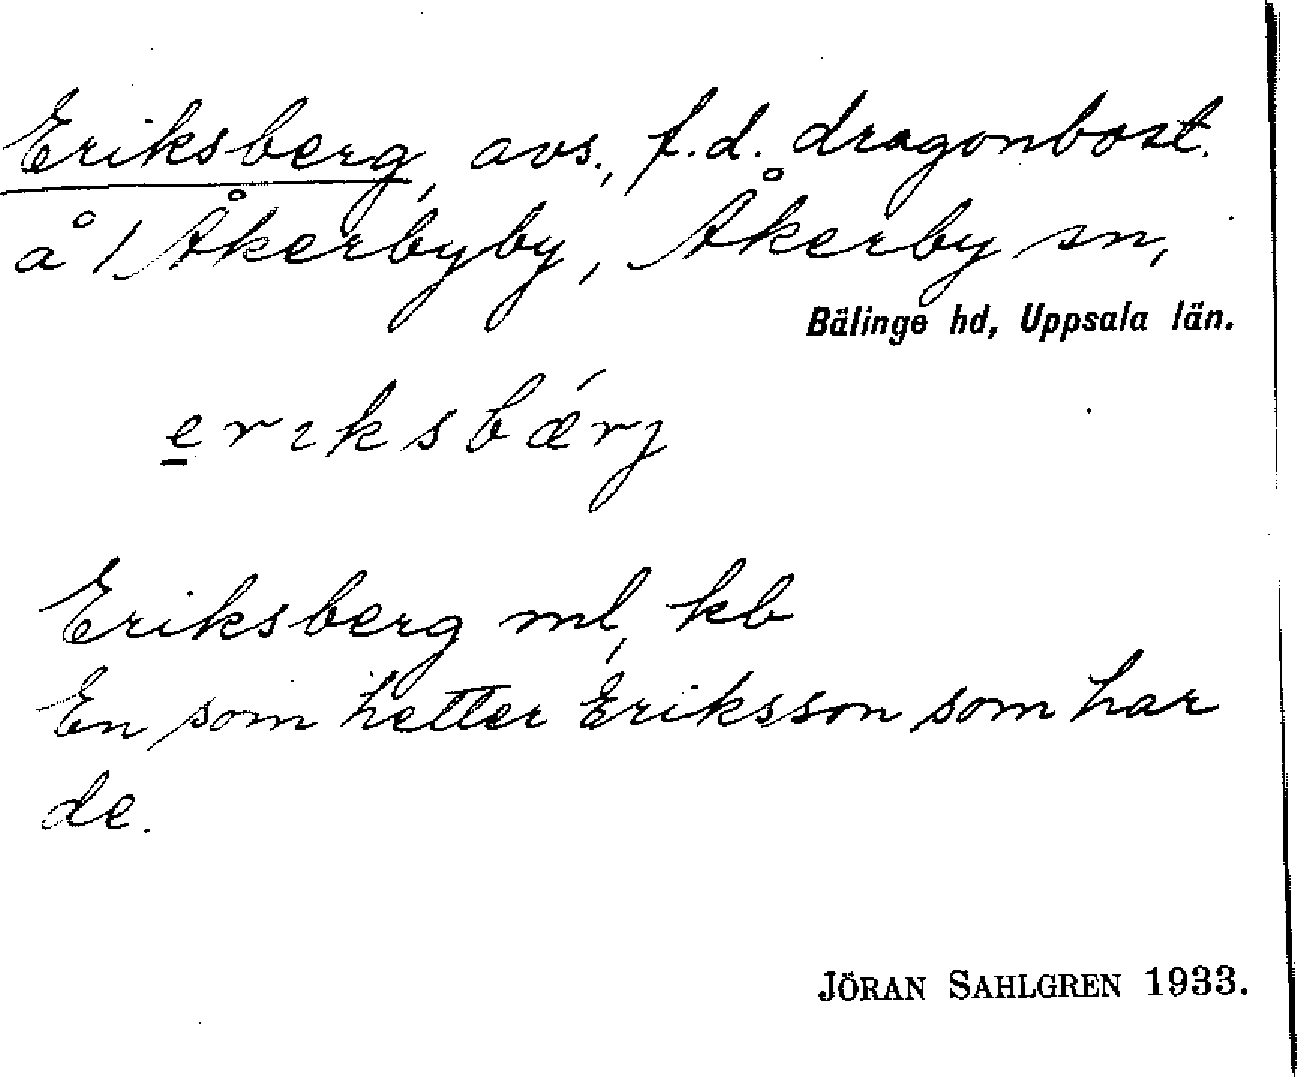 Eriksberg, avs., f.d. dragonbost.
å 1 Åkerbyby, Åkerby sn,
Bälinge hd, Uppsala län.
eriksbǽrj
Eriksberg ml, kb
En som hetter Eriksson som har
de.
JÖRAN SAHLGREN 1933.